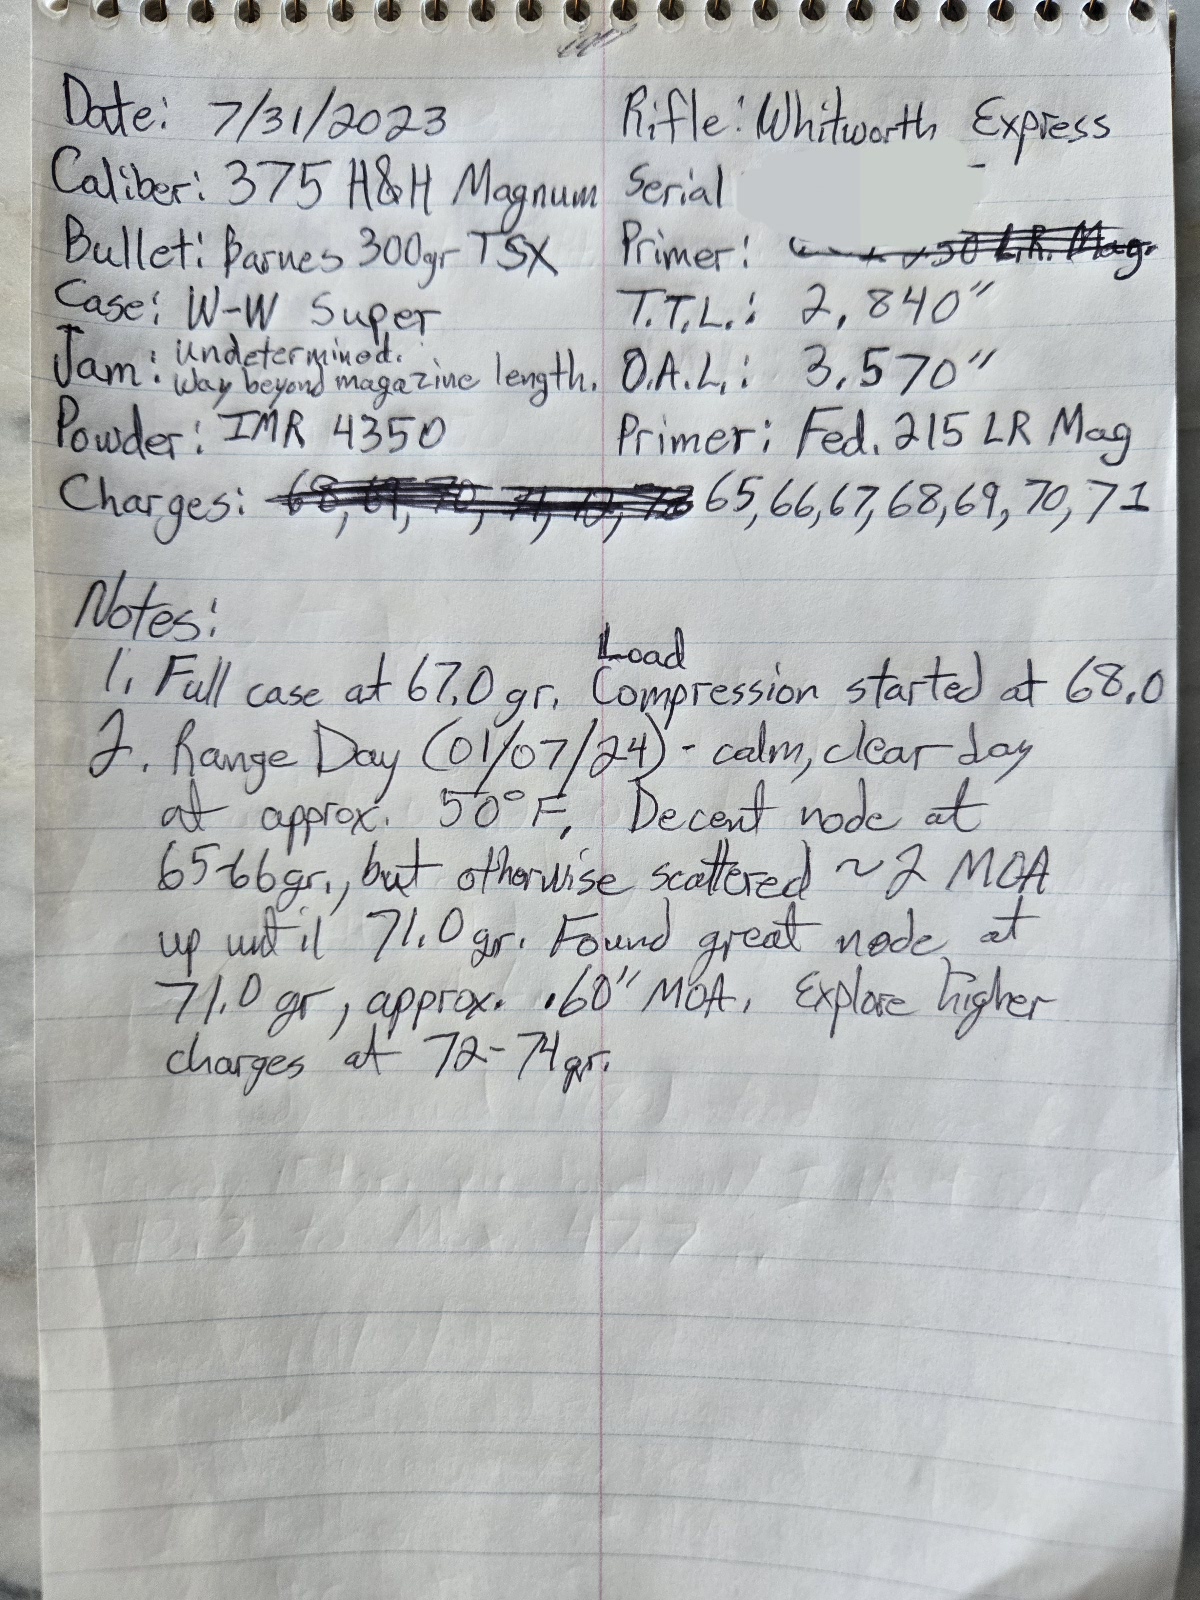 Date: 7/31/2023 Rifle: Whitworth Express
Caliber: 375 H&H Magnum Serial
Bullet: Barnes 300gr TSX Primer: L.R. Mag.
Case: W-W Super T.T.L.: 2.840"
Jam: Undetermined. Way beyond magazine length. O.A.L.: 3.570"
Powder: IMR 4350 Primer: Fed. 215 LR Mag
Charges: 68, 69, 70, 71, 72, 73 65, 66, 67, 68, 69, 70, 71
Notes:
Load
1. Full case at 67.0 gr. Compression started at 68.0
2. Range Day (01/07/24) - calm, clear day
at approx. 50°F. Decent node at
65-66gr., but otherwise scattered ~2 MOA
up until 71.0 gr. Found great node at
71.0 gr, approx. .60" MOA. Explore higher
charges at 72-74gr.